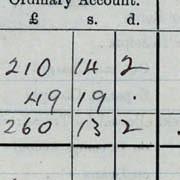 Ordinary Account.
£ s. d.
210 14 2
49 19 .
260 13 2